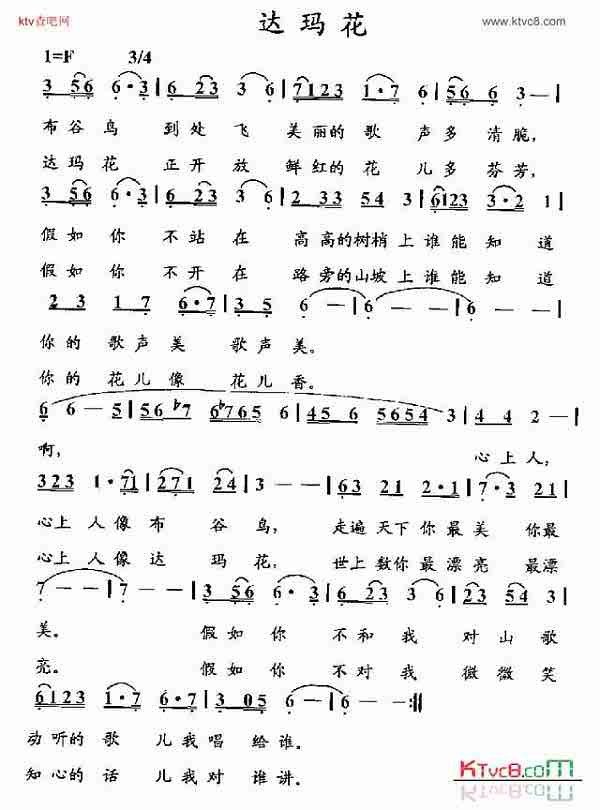 ktv查吧网
www.ktvc8.com
达玛花
1=F 3/4
3 56 6·3 | 6 23 3 6 | 7123 3·7 6 | 56 6 3 — |
布谷鸟 到处飞 美丽的歌 声多清脆,
达玛花 正开放 鲜红的花 儿多芬芳,
3 56 6·3 | 6 23 3 6 | 2 33 54 3 | 6123 3·2 1 |
假如你 不站在 高高的树梢上谁能知道
假如你 不开在 路旁的山坡上谁能知道
2 3 1 7 6·7 | 3 5 | 6 — — | 6 — — | 6 — —
你的歌声美 歌声美。
你的花儿像 花儿香。
6 6 — 5 | 56 67 6765 6 | 45 6 5654 3 | 4 4 2 — |
啊, 心上人,
323 1·71 | 271 2 4 | 3 — — | 63 21 2·1 | 7·3 21 |
心上人像布 谷鸟, 走遍天下你最美 你最
心上人像达 玛花, 世上数你最漂亮 最漂
7 — — | 7 — — | 3 56 6·3 | 6 23 3 6 | 2 23 54 3 |
美。 假如你 不和我 对山歌
亮。 假如你 不对我 微微笑
6123 1·7 6·7 | 3 05 6 — | 6 — :||
动听的歌 儿我唱给谁。
知心的话 儿我对谁讲。
KTvc8.com